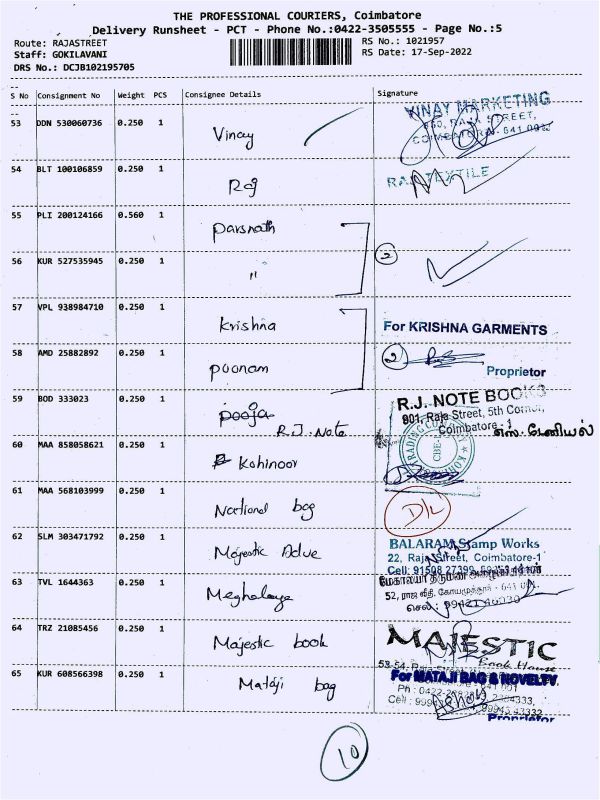 THE PROFESSIONAL COURIERS, Coimbatore
Delivery Runsheet - PCT - Phone No.:0422-3505555 - Page No.:5
Route: RAJASTREET
RS No.: 1021957
Staff: GOKILAVANI
RS Date: 17-Sep-2022
DRS No.: DCJB102195705
S No Consignment No Weight PCS Consignee Details Signature
53 DDN 530060736 0.250 1 Vinay
VINAY MARKETING
RAJA STREET,
COIMBATORE - 641 001
54 BLT 100106859 0.250 1 Raj
RAJ TEXTILE
55 PLI 200124166 0.560 1 Parsnath
56 KUR 527535945 0.250 1 "
2
57 VPL 938984710 0.250 1 Krishna
For KRISHNA GARMENTS
58 AMD 25882892 0.250 1 poonam
2
Proprietor
59 BOD 333023 0.250 1 pooja
R.J. Note
R.J. NOTE BOOKS
901, Raja Street, 5th Corner,
Coimbatore-1
எஸ். டேனியல்
60 MAA 858058621 0.250 1 Kohinoor
61 MAA 568103999 0.250 1 National bag
D/L
62 SLM 303471792 0.250 1 Majestic Adve
BALARAM Stamp Works
22, Raja Street, Coimbatore-1
Cell: 91508 27399,
63 TVL 1644363 0.250 1 Meghalaya
மேகாலயா திருமண
52, ராஜ வீதி, கோயமுத்தூர் - 641 001.
செல் : 99421 46030
64 TRZ 21085456 0.250 1 Majestic book
MAJESTIC
Book House
53-54, Raja
65 KUR 608566398 0.250 1 Mataji bag
For MATAJI BAG & NOVELTY
Ph : 0422-
Cell : 9994
99943 43332
Proprietor
10